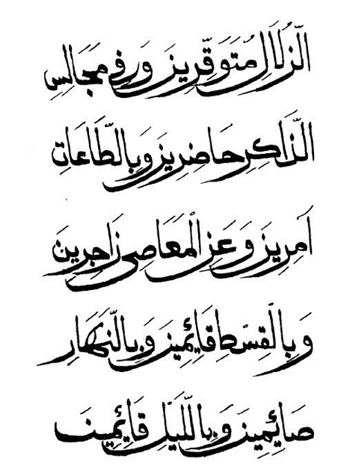 الزُّلَالِ مُتَوَقِّرِينَ وَفِي مَجَالِسِ
الذَّاكِرِ حَاضِرِينَ وَبِالطَّاعَاتِ
اٰمِرِينَ وَعَنِ الْمَعَاصِي زَاجِرِينَ
وَبِالْقِسْطِ قَائِمِينَ وَبِالنَّهَارِ
صَائِمِينَ وَبِاللَّيْلِ قَائِمِينَ